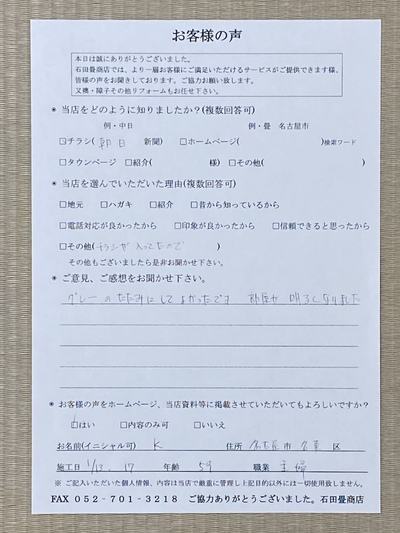 お客様の声
本日は誠にありがとうございました。
石田畳商店では、より一層お客様にご満足いただけるサービスがご提供できます様、
皆様の声をお聞きしております。ご協力お願い致します。
又襖・障子その他リフォームもお任せ下さい。
* 当店をどのように知りましたか？(複数回答可)
例・中日 例・畳 名古屋市
☐チラシ( 朝日 新聞) ☐ホームページ( )検索ワード
☐タウンページ ☐紹介( 様) ☐その他( )
* 当店を選んでいただいた理由(複数回答可)
☐地元 ☐ハガキ ☐紹介 ☐昔から知っているから
☐電話対応が良かったから ☐印象が良かったから ☐信頼できると思ったから
☐その他( チラシが入ってたので )
その他もございましたら是非お聞かせ下さい。
* ご意見、ご感想をお聞かせ下さい。
グレーのたたみにしてよかったです 部屋が明るくなりました
* お客様の声をホームページ、当店資料等に掲載させていただいてもよろしいですか？
☐はい ☐内容のみ可 ☐いいえ
お名前(イニシャル可) K 住所 名古屋市 名東 区
施工日 1/13.17 年齢 59 職業 主婦
※ ご記入いただいた個人情報、内容は当店で厳重に管理し上記目的以外には一切使用致しません。
FAX 052-701-3218 ご協力ありがとうございました。石田畳商店